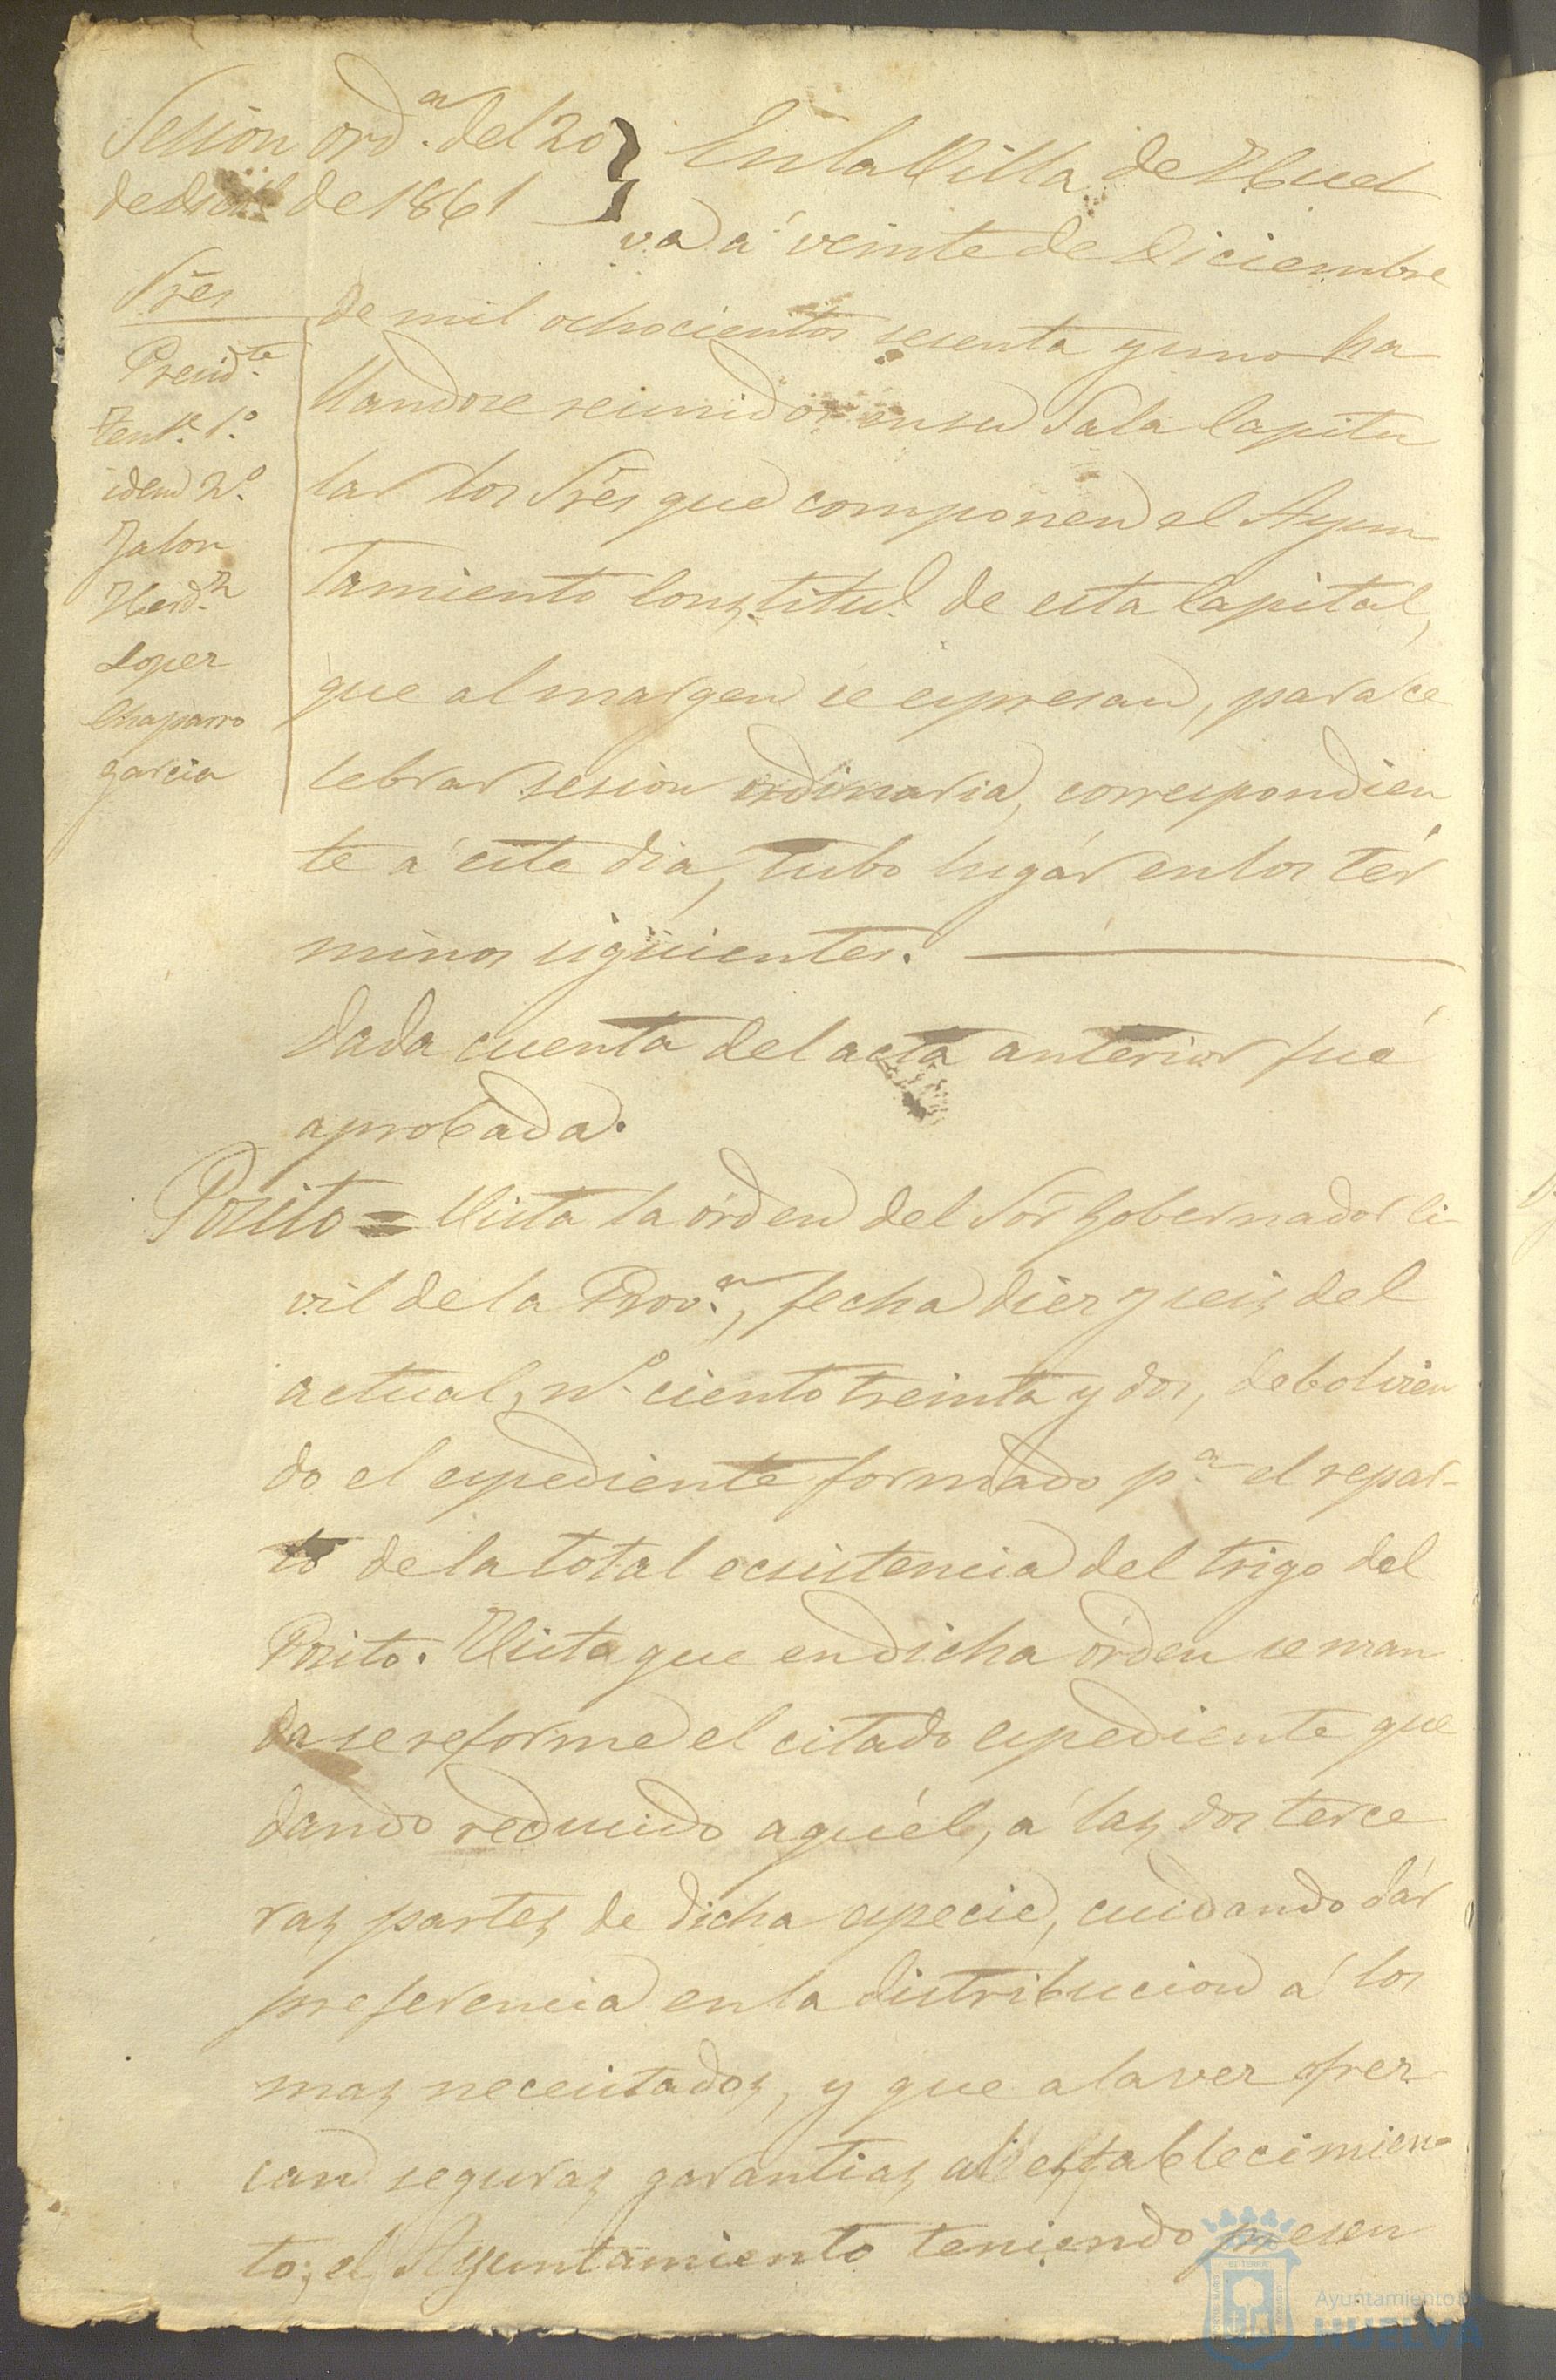 Sesion ord.ª del 20
de Dicbre de 1861
Sres
Presid.te
Ten.te 1.º
idem 2.º
Jalon
Herd.z
Lopez
Chaparro
garcia
En la Villa de Huel
va á veinte de Diciembre
de mil ochocientos sesenta y uno ha
llandose reunidos en su Sala Capitu
lar los Sres que componen el Ayun
tamiento Constitul. de esta Capital,
que al margen se espresan, para ce
lebrar sesion ordinaria, correspondien
te á este dia, tubo lugár en los tér
minos siguientes.
Dada cuenta del acta anterior fué
aprobada.
Posito = Vista la órden del Sor Gobernador Ci
vil de la Prov.ª, fecha diez y seis del
actual, nº ciento treinta y dos, debolvien
do el espediente formado p.ª el repar-
to de la total ecsistencia del trigo del
Posito. Vista que en dicha órden se man
da se reforme el citado espediente que
dando reducido aquél, á las dos terce
ras partes de dicha especie, cuidando dár
preferencia en la distribucion á los
mas necesitados, y que a la vez ofrez-
can seguras garantias al establecimien-
to; el Ayuntamiento teniendo presen
Ayuntamiento de
HUELVA